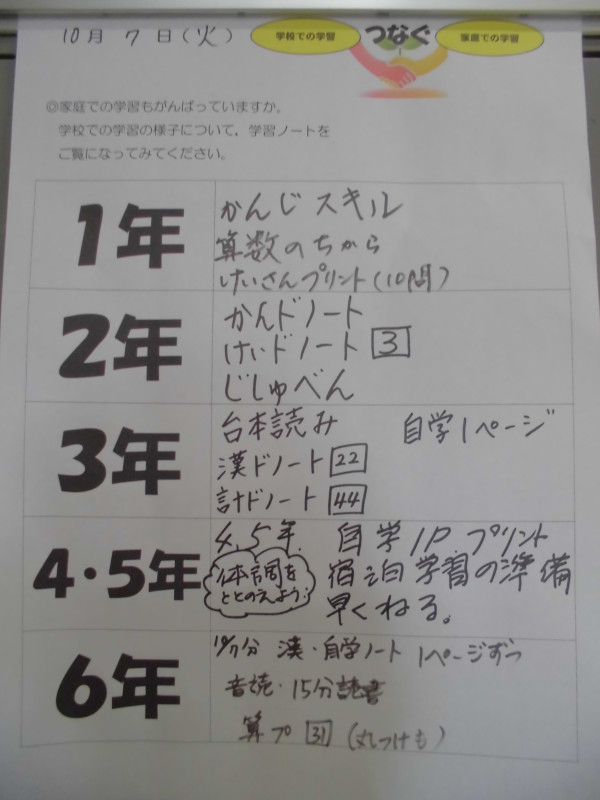 10月 7日(火)
学校での学習 つなぐ 家庭での学習
◎家庭での学習もがんばっていますか。
学校での学習の様子について、学習ノートを
ご覧になってみてください。
1年
かんじスキル
算数のちから
けいさんプリント(10問)
2年
かんドノート
けいドノート 3
じしゅべん
3年
台本読み 自学1ページ
漢ドノート 22
計ドノート 44
4・5年
4.5年 自学1P.プリント
体調を
ととのえよう!
宿泊学習の準備
早くねる。
6年
10/7分 漢・自学ノート 1ページずつ
音読・15分読書
算プ 31 (丸つけも)